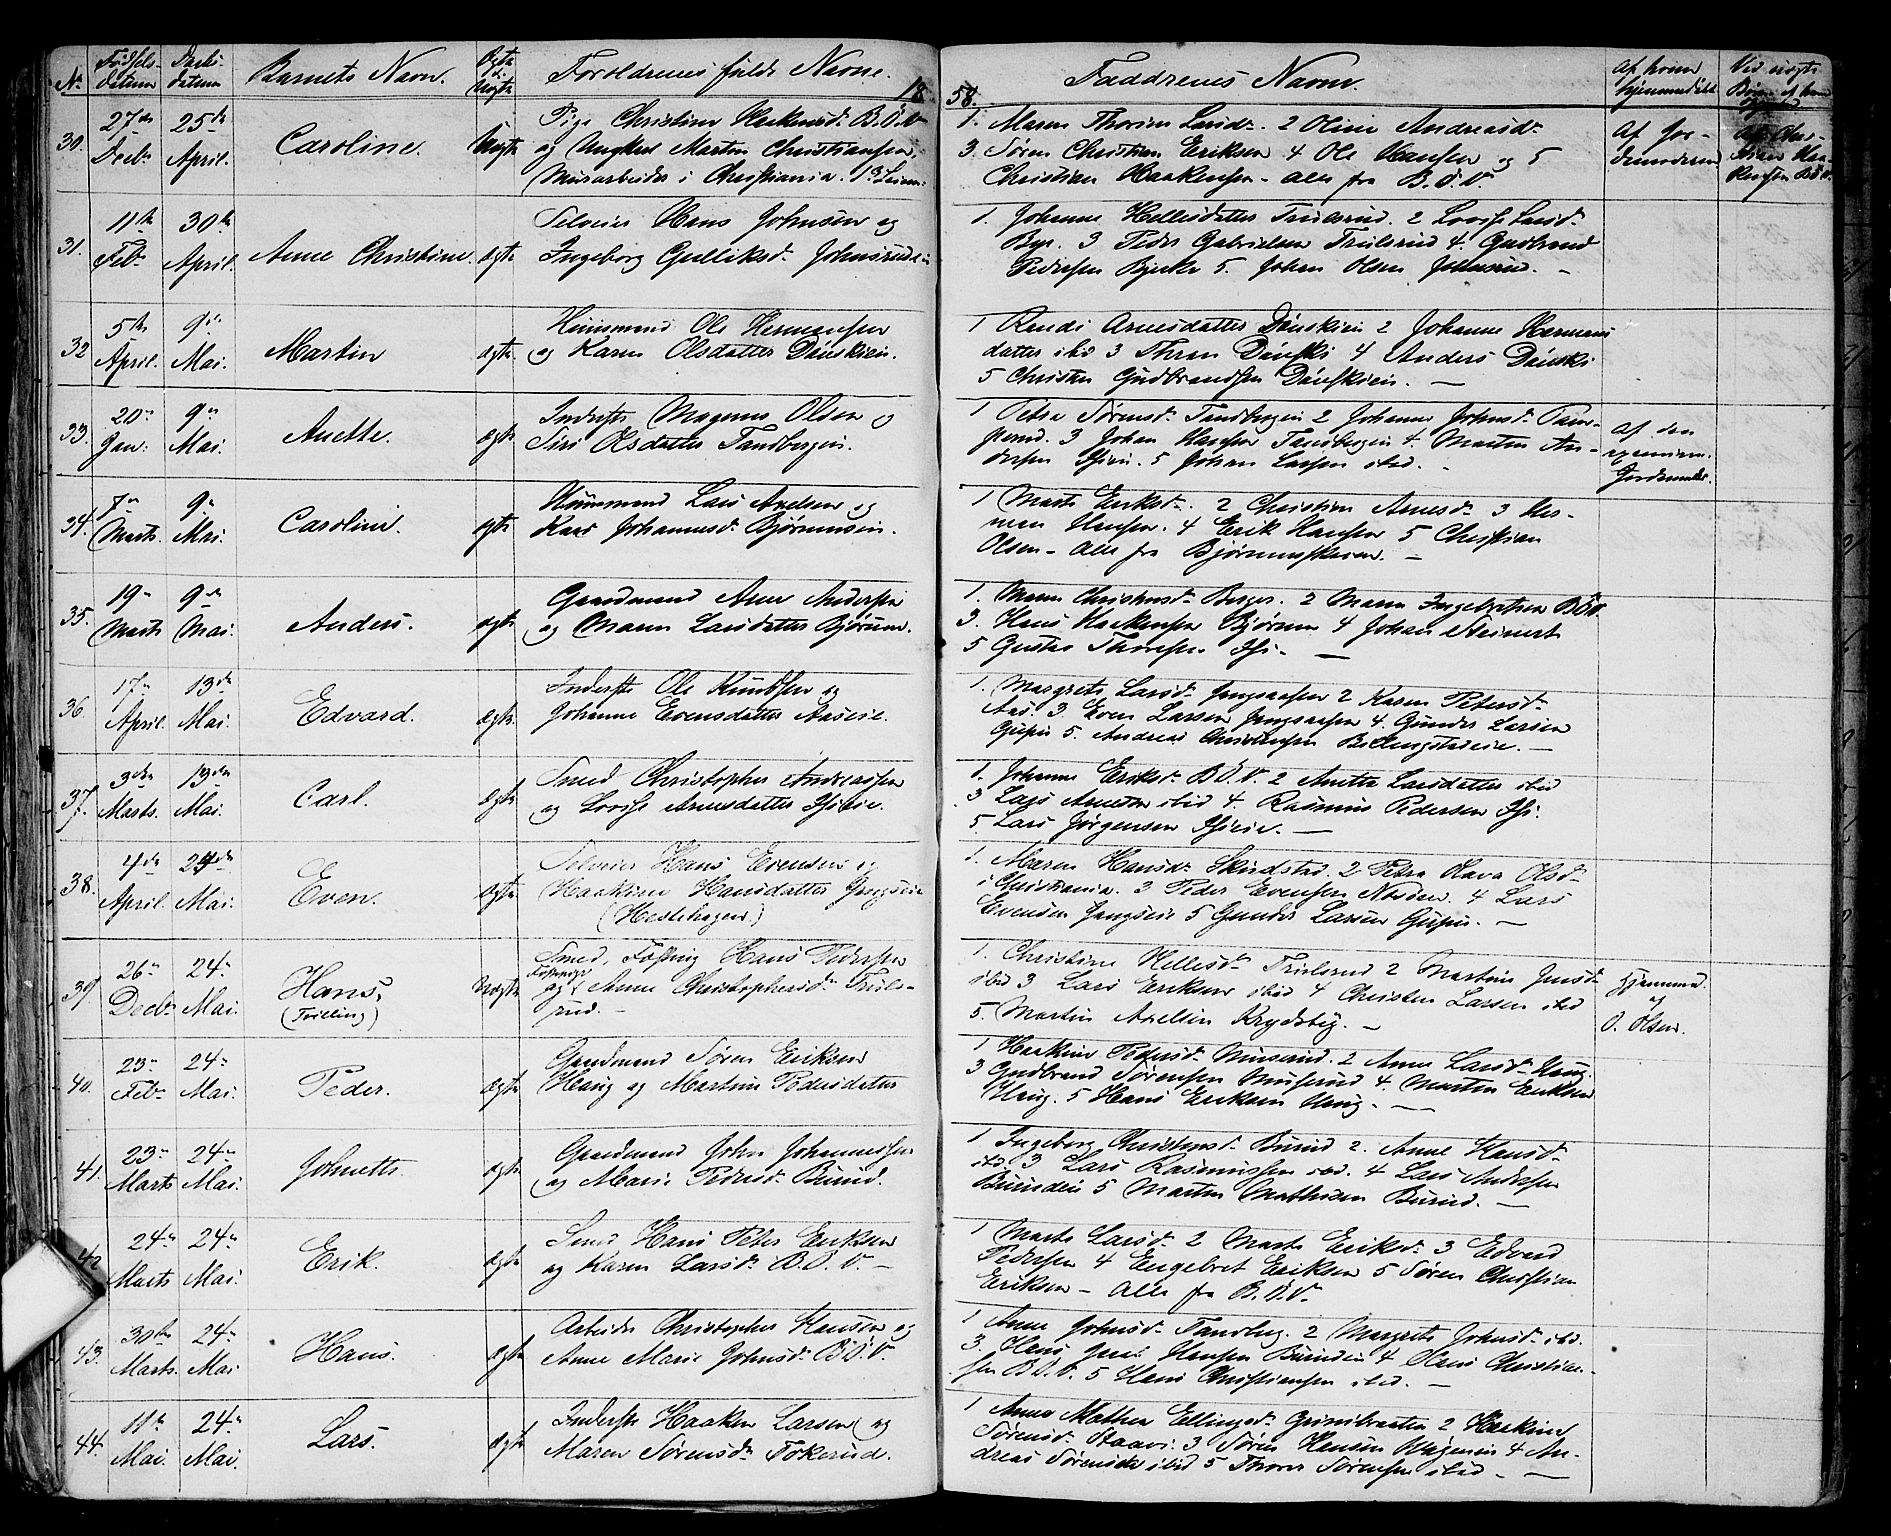 No. Fødsels- datum Daabs- datum Barnets Navn. Ægte ell. Uægte Forældrenes fulde Navne. 18
58. Faddrenes Navn. Af hvem hjemmedøbt Ved uægte
30. 27de Decbr 25de April. Caroline. Uægte Pige Christine Haakensdr. B.Ø.V.
og Ungkarl Martin Christiansen,
Murarbeider i Christiania. 1ste Leierm:
1. Maren Thorine Larsdr. 2 Oline Andreasdr.
3. Søren Christian Eriksen 4 Ole Hansen og 5
Christian Haakensen - alle fra B.Ø.V.
Af Jor-
demoderen
31. 11te Feb. 30te April. Anne Christine. ægte Selveier Hans Johnsen og
Ingeborg Gulliksdr. Johnsrudeie
1. Johanne Hellesdatter Trulsrud. 2 Lovise Larsdr.
Bye. 3 Peder Gabrielsen Trulsrud 4. Gudbrand
Pedersen Bjerke 5. Johan Olsen Johnsrud. -
32 5te April. 9de Mai. Martin ægte. Huusmand Ole Hermansen
og Karen Olsdatter Dønskieie.
1 Randi Arnesdatter Dønskieie 2 Johanne Hermans
datter ibid 3 Thran Dønski 4 Anders Dønski
5 Christen Gudbrandsen Dønskieie. -
33. 20de Jan: 9de Mai. Anette. ægte Inderste Magnus Olsen og
Siri Olsdatter Tandbergeie.
1 Petra Sørensd. Tandbergeie 2 Johanne Johnsdr.
3 Johan Hansen Tandbergeie 4. Martin An-
dersen Isieie. 5 Johan Larsen ibid. -
af den
examinere
Jordemoder.
34. 7de Marts. 9de Mai. Caroline. ægte Huusmand Lars Axelsen og
Kari Johannesdr. Bjørumseie.
1 Marte Eriksdr. 2 Christine Arnesdr. 3 Her-
man Hansen. 4 Erik Hansen 5 Christian
Olsen - alle fra -
35. 19de Marts 9de Mai. Anders. ægte Gaardmand Arne Andersen
og Maren Larsdatter Bjørum.
1. Maren Berger. 2 Maren Ingebretsen B.Ø.V.
3. Hans Haakensen Bjørum 4 Johan Steinert
5 Gustav Thoresen Isi. -
36. 17de April. 13de Mai. Edvard. ægte. Inderste Ole Knudsen og
Johanne Evensdatter Aaseie.
1. Margrete Larsdr. 2 Karen Petersdr.
Aas. 3. Even Larsen 4. Gunder Larsen
5. Andreas Christensen Billingstadeie. -
37. 3die Marts. 13de Mai. Carl. ægte Smed Christopher Andreassen
og Lovise Arnesdatter Isieie.
1. Johanne Eriksdr. B.Ø.V. 2 Anette Larsdatter ibid
3 Lars Arnesen ibid 4. Rasmus Pedersen Isi.
5 Lars Jørgensen Isieie. -
38. 4de April. 24de Mai. Even. ægte Selveier Hans Evensen og
Haakine Hansdatter Jongseie
(Hestehagen)
1. Maren Hansdr. Skustad. 2 Petra Hava Olsdr.
i Christiania. 3 Peder Evensen 4 Lars
Evensen Jongseie 5 Gunder Larsen -
39 26de Decbr 24de Mai. Hans, (Tvilling) Uægte Smed, Hans Pedersen
og Anne Christophersdr. Truls-
rud. -
1. Christine Hellesdr. Trulsrud 2 Martine Jensdr.
ibid 3 Lars Eriksen ibid 4 Christen Larsen ibid
5. Martin Axelsen Krydsby. -
Hjemmed.
af
O. Olsen.
40. 23de Feb. 24de Mai. Peder. ægte Gaardmand Søren Eriksen
Haug og Martine Pedersdatter
1 Haakine Pedersdr. Muserud. 2 Anne Larsdr. Haug.
3 Gudbrand Sørensen Muserud 4. Morten Eriksen
Haug. 5 Hans Eriksen Haug. -
41. 23de Marts 24de Mai. Johnette. ægte Gaardmand John Johannessen
og Marie Pedersdr. Burud.
1 Ingeborg Christensdr. Burud 2. Anne Hansdr.
ibid. 3 Lars Rasmussen ibid. 4 Lars Andersen
Burudeie 5 Morten Mathisen Burud. -
42 24de Marts 24de Mai. Erik. ægte Smed Hans Peter Eriksen
og Karen Larsdr. B.Ø.V. -
1 Marte Larsdr. 2 Marte Eriksdr. 3 Edvard
Pedersen 4 Engebret Eriksen 5 Søren Christian
Eriksen - alle fra B.Ø.V.
43. 30te Marts. 24de Mai Hans. ægte Arbeider Christopher Hansen og
Anne Marie Johnsdr. B.Ø.V.
1 Anne Johnsdr. Tandberg. 2 Margrete Johnsdr. ibid.
3. Hans Hansen Burudeie 4 Hans Christian-
sen B.Ø.V. 5 Hans Christiansen ibid. -
44. 11te Mai. 24de Mai. Lars. ægte Inderste Haaken Larsen og
Maren Sørensdr. Tokerud.
1 Anne Mathea Ellingsdr. 2 Haakine
Sørensdr. Staavi. 3 Søren Hansen 4 An-
dreas Sørensen ibid 5 Thorer Sørensen ibid - -